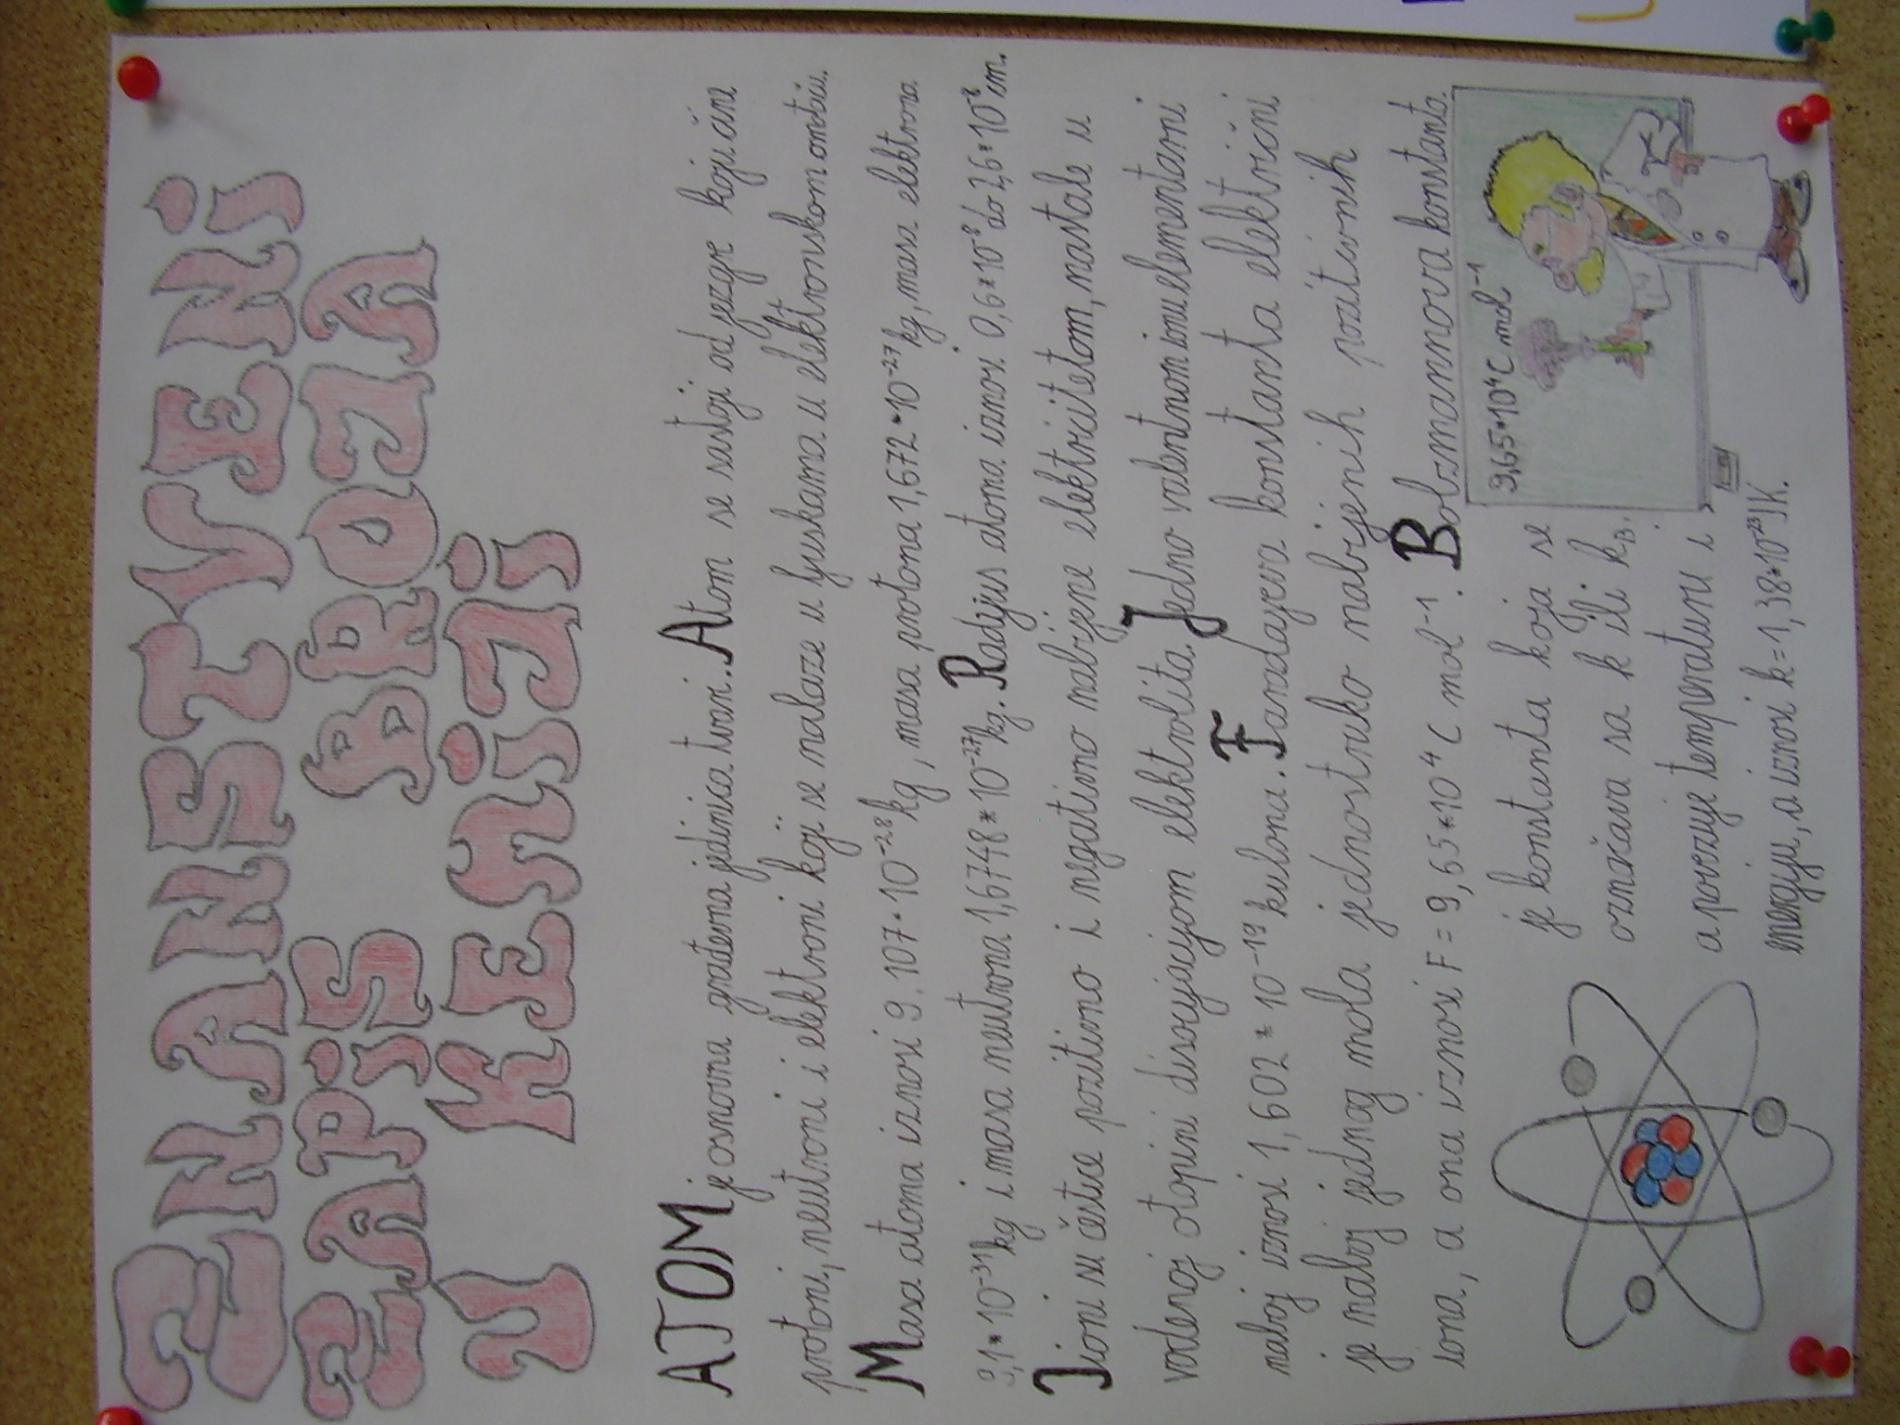 ZNANSTVENI
ZAPIS BROJA
U KEMIJI
ATOM je osnovna građevna jedinica tvari. Atom se sastoji od jezgre koju čine
protoni, neutroni i elektroni koji se nalaze u ljuskama u elektronskom omotaču.
Masa atoma iznosi 9.107*10⁻²⁸kg, masa protona 1,672*10⁻²⁷kg, masa elektrona
9,1*10⁻³¹kg i masa neutrona 1,6748*10⁻²⁷kg. Radijus atoma iznosi 0,6*10⁸ do 2,6*10⁸cm.
Iioni su čestice pozitivno i negativno nabijene elektricitetom, nastale u
vodenoj otopini disocijacijom elektrolita. Jedno valentnom ionu elementarni
naboj iznosi 1,602*10⁻¹⁹ kulona. Faradayeva konstanta elektrićni
je naboj jednog mola jednostruko nabijenih pozitivnih
iona, a ona iznosi F = 9,65*10⁴ C mol⁻¹. Bolzmannova konstanta
je konstanta koja se
označava sa k ili k_B,
a povezuje temperaturu i
energiju, a iznosi k=1,38*10⁻²³JK.
9,65*10⁴C mol⁻¹